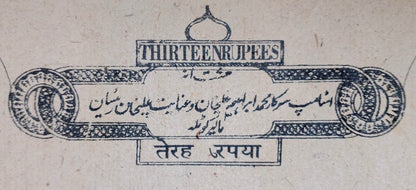 THIRTEEN RUPEES
اسٹامپ سرکار محمد ابراہیم علیخان و عنایت علیخان رئیسان
مالیر کوٹلہ
तेरह रुपया